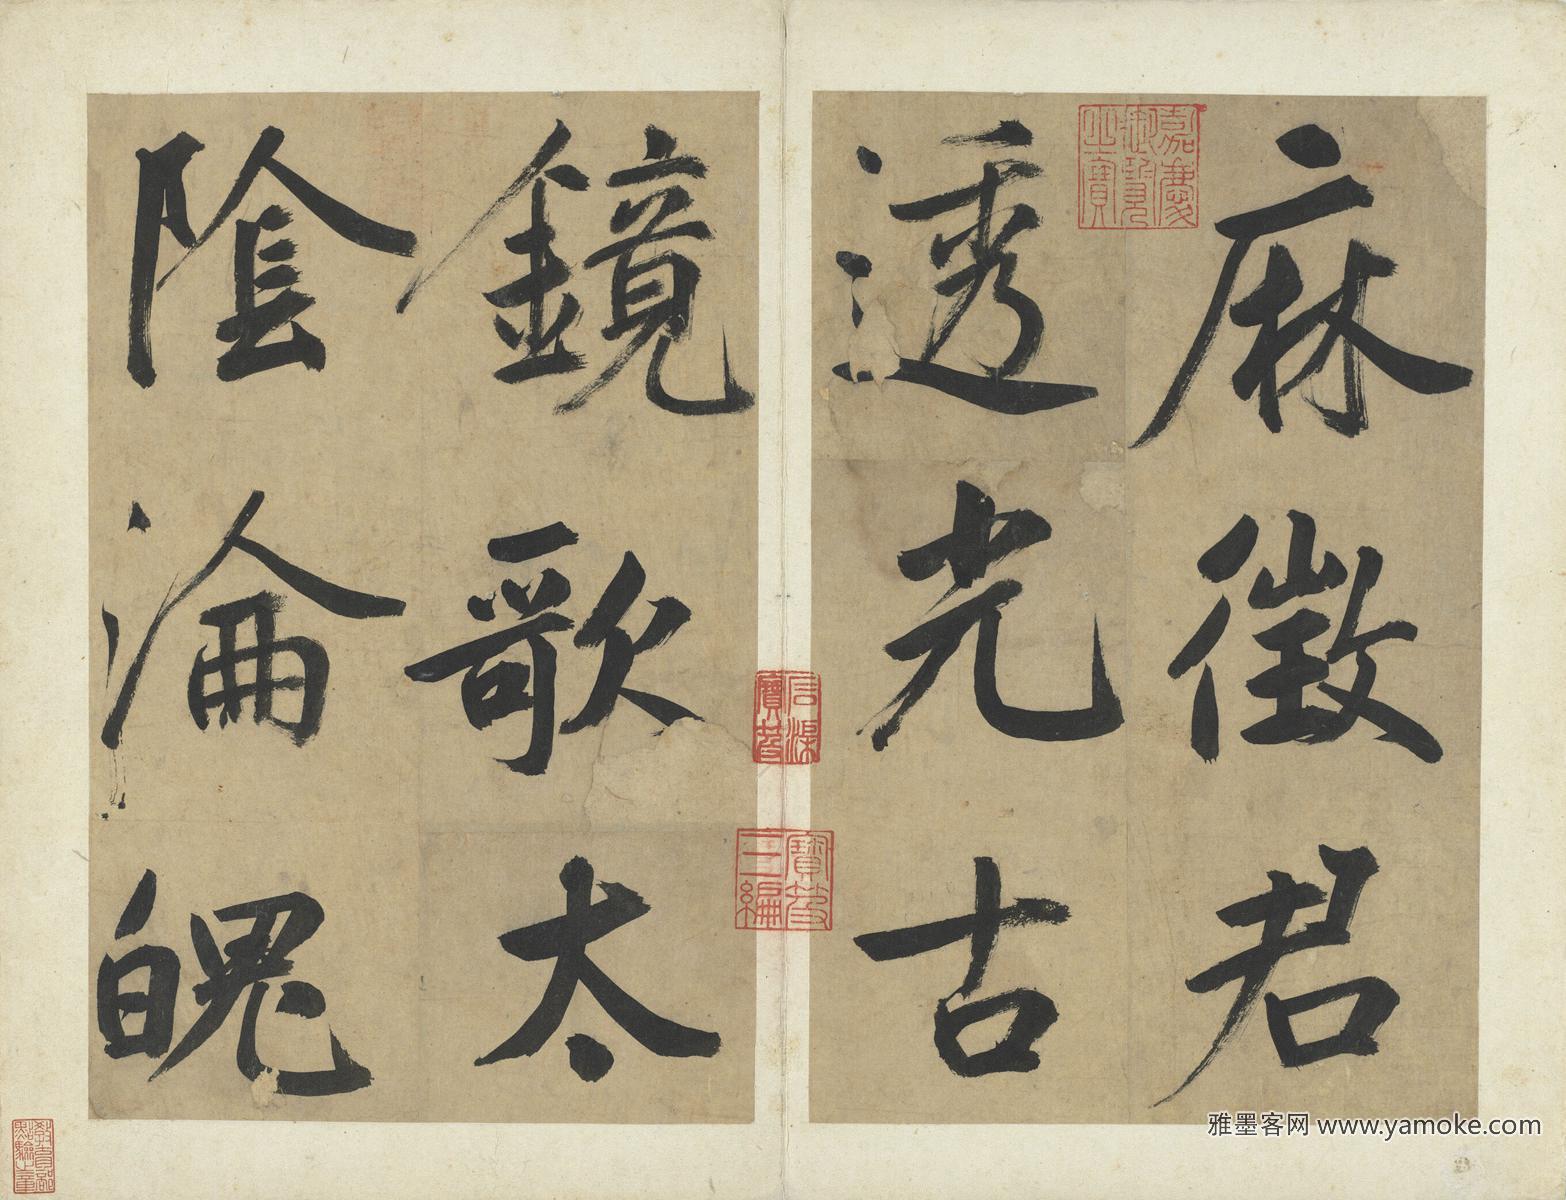 麻徵君
透光古
鏡歌太
陰淪魄
嘉慶御覽之寶
石渠寶笈
寶笈三編
雅墨客网 www.yamoke.com